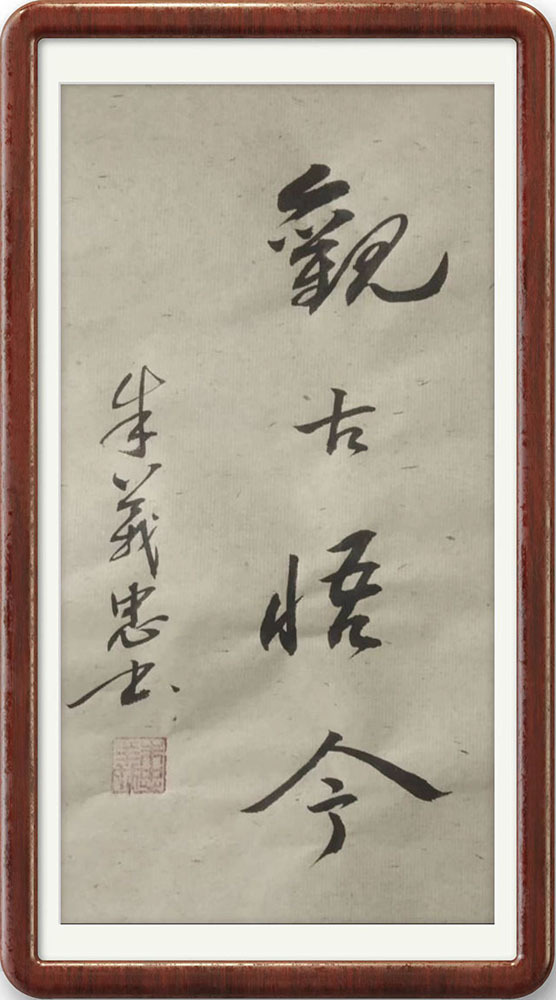 觀古悟今
朱義忠书